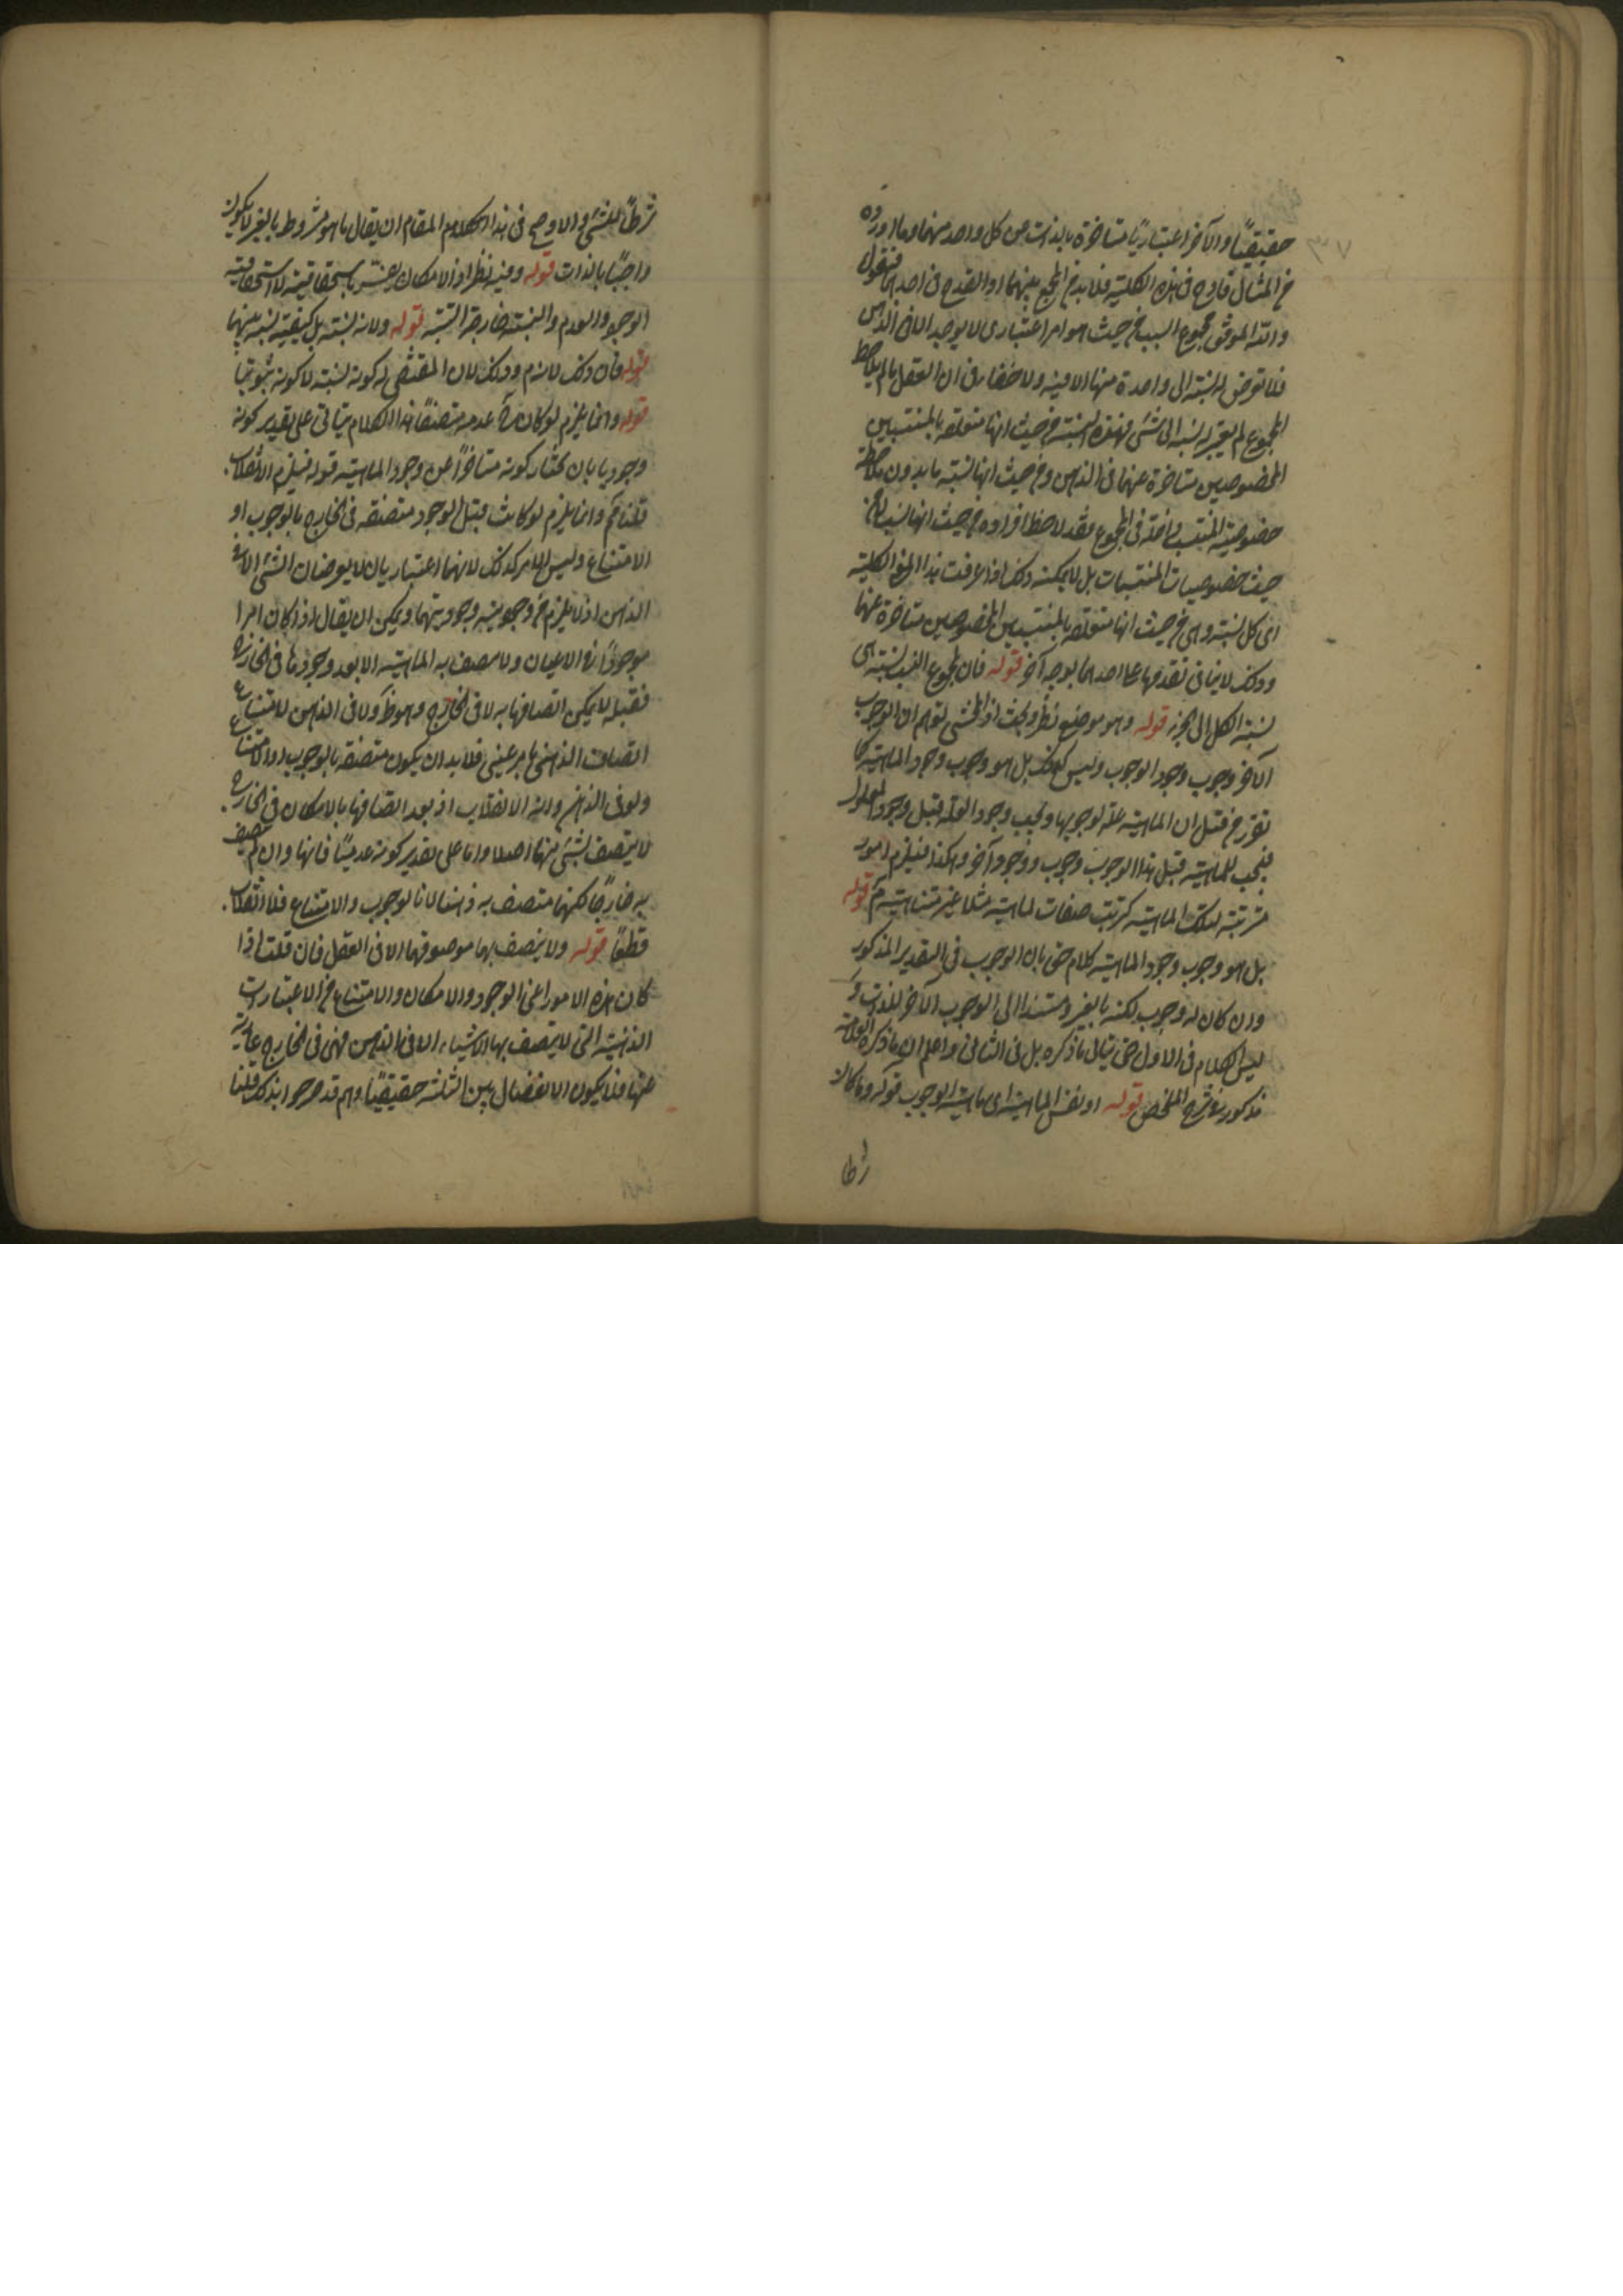 ٣٧
حقيقيًا والآخر اعتباريًا متاخرة بالذات عن كل واحد منهما وما اورده
من المثال قادح فى هذه الكلية فلا بد من الجمع بينهما او القدح فى احدهما فنقول
والله الموفق مجموع السبب من حيث هو امر اعتبارى لا يوجد الا فى الذهن
فلا تعرض له نسبة الى واحدة منها الا فيه ولا خفاء فى ان العقل ما لم يلاحظ
المجموع لم يعتبر له نسبة الى شئ فهذه النسبة من حيث انها متعلقة بالمنتسبين
المخصوصين متاخرة عنهما فى الذهن ومن حيث انها نسبة ما بدون ملاحظة
خصوصية المنتسب داخلة فى المجموع فقد لاحظ افراده من حيث انها نسب لا من
حيث خصوصيات المنتسبات بل لا يمكنه ذلك اذا عرفت هذا الكلية
اى كل نسبة وهى من حيث انها متعلقة بالمنتسبين المخصوصين متاخرة عنهما
وذلك لا ينافى تقدمها على احدهما بوجه آخر قوله فان مجموع النسب نسبة هى
نسبة الكل الى الجزء قوله وهو موضع نظر وبحث اذ المحشى توهم ان الوجوب
الآخر وجوب وجود الوجوب وليس كذلك بل هو وجوب وجود الماهية كما
تقرر من قبل ان الماهية علة لوجوبها ويجب وجود العلة قبل وجود المعلول
فيجب للماهية قبل هذا الوجوب وجوب ووجود آخر وهكذا فيلزم امور
مترتبة لتلك الماهية كترتب صفات لماهية مثلا غير متناهية قوله
بل هو وجوب وجود الماهية كلام حق بان الوجوب فى التقدير المذكور
وان كان له وجوب لكنه بالغير ومستندا الى الوجوب الآخر للذات و
ليس الكلام فى الاول حتى يتأتى ما ذكره بل فى الثانى واعلم ان ما ذكره العلامة
مذكور فى شرح الملخص قوله او نفس الماهية اى ماهية الوجوب قوله وما كان
شرطًا للشئ والاوضح فى هذا المقام ان يقال ما هو مشروط بالغير لا يكون
واجبًا بالذات قوله وفيه نظر اذ الامكان
الوجود والعدم والنسبة خارجة قوله ولانه نسبة بل كيفية نسبة بينهما
قوله فان ذلك لازم وذلك لان المقتضى له كونه نسبة لا كونه ثبوتيًا
قوله وانما يلزم لو كان عدمه متصفًا هذا الكلام يتأتى على تقدير كونه
وجوديا بان يختار كونه متاخرًا عن وجود الماهية قوله فيلزم الانقلاب
قلنا مم وانما يلزم لو كانت قبل الوجود متصفة فى الخارج بالوجوب او
الامتناع وليس الامر كذلك لانهما اعتباريان لا يعرضان الشئ الا فى
الذهن اذ لا يلزم من وجوديته وجوديتهما ويمكن ان يقال اذا كان امرا
موجودًا فى الاعيان ولا يتصف به الماهية الا بعد وجودها فى الخارج
فقبله لا يمكن اتصافها به لا فى الخارج وهو ظ ولا فى الذهن لامتناع
اتصاف الذهنى بامر عينى فلا بد ان يكون متصفة بالوجوب او الامتناع
ولو فى الذهن ولزم الانقلاب اذ بعد اتصافها بالامكان فى الخارج
لا يتصف بشئ منهما اصلا واما على تقدير كونه عدميًا فانها وان لم يتصف
به خارجًا لكنها متصف به ذهنا لا بالوجوب والامتناع فلا انقلاب
قطعًا قوله ولا يتصف بها موصوفها الا فى العقل فان قلت اذا
كان هذه الامور اعنى الوجود والامكان والامتناع من الاعتباريات
الذهنية التى لا يتصف بها الاشياء الا فى الذهن فهى فى الخارج عارية
عنها فلا يكون الانفصال بين الثلثة حقيقيًا وهم قد صرحوا بذلك قلنا